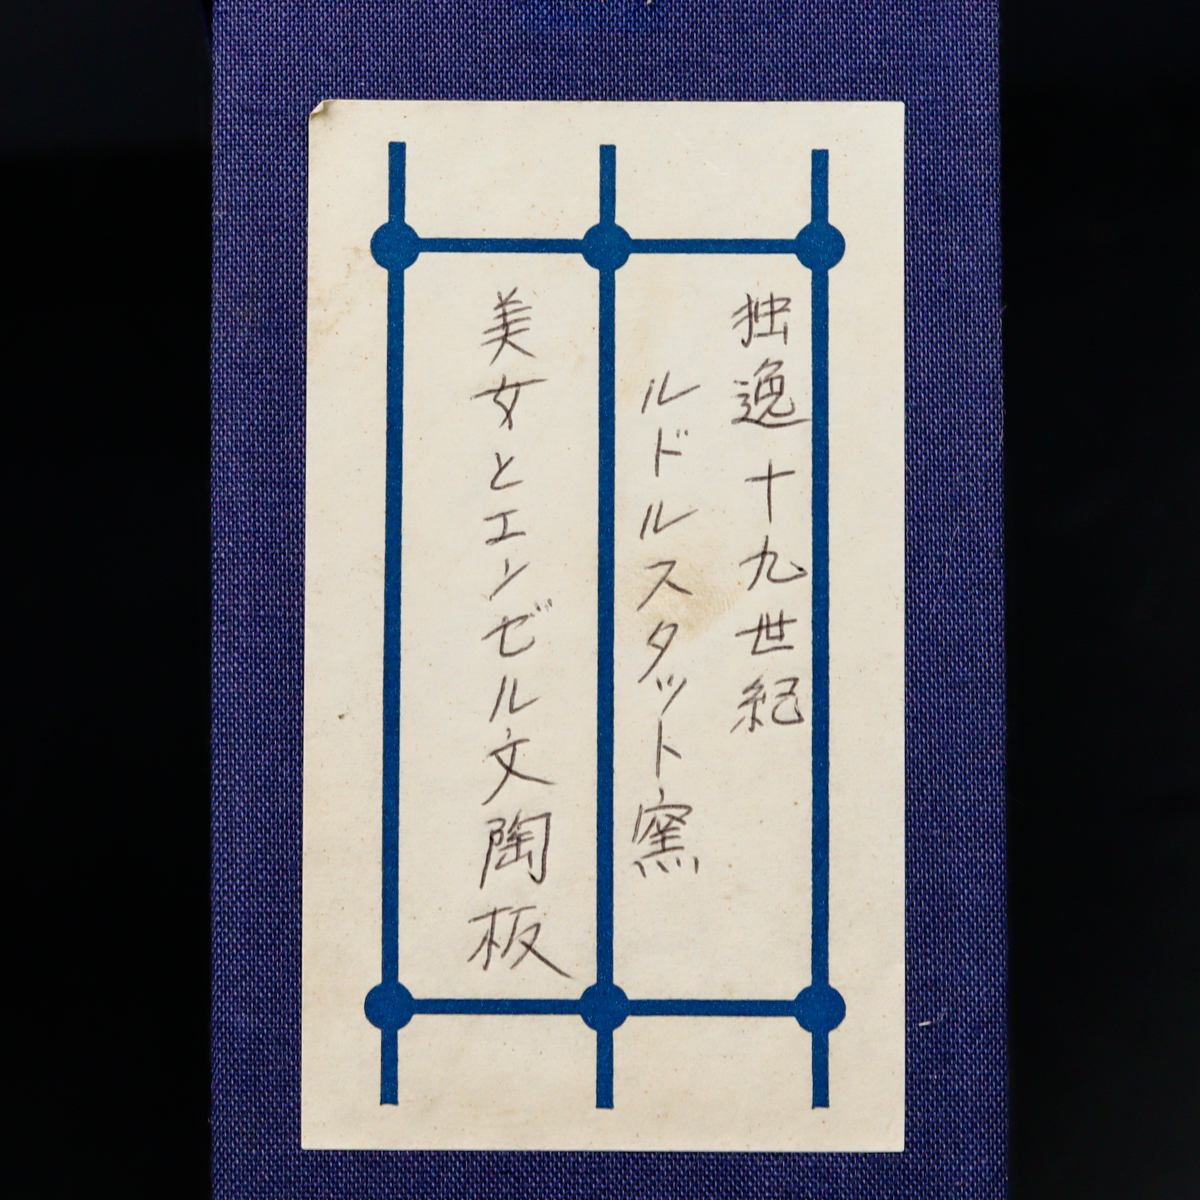 独逸十九世紀
ルドルスタット窯
美女とエンゼル文陶板